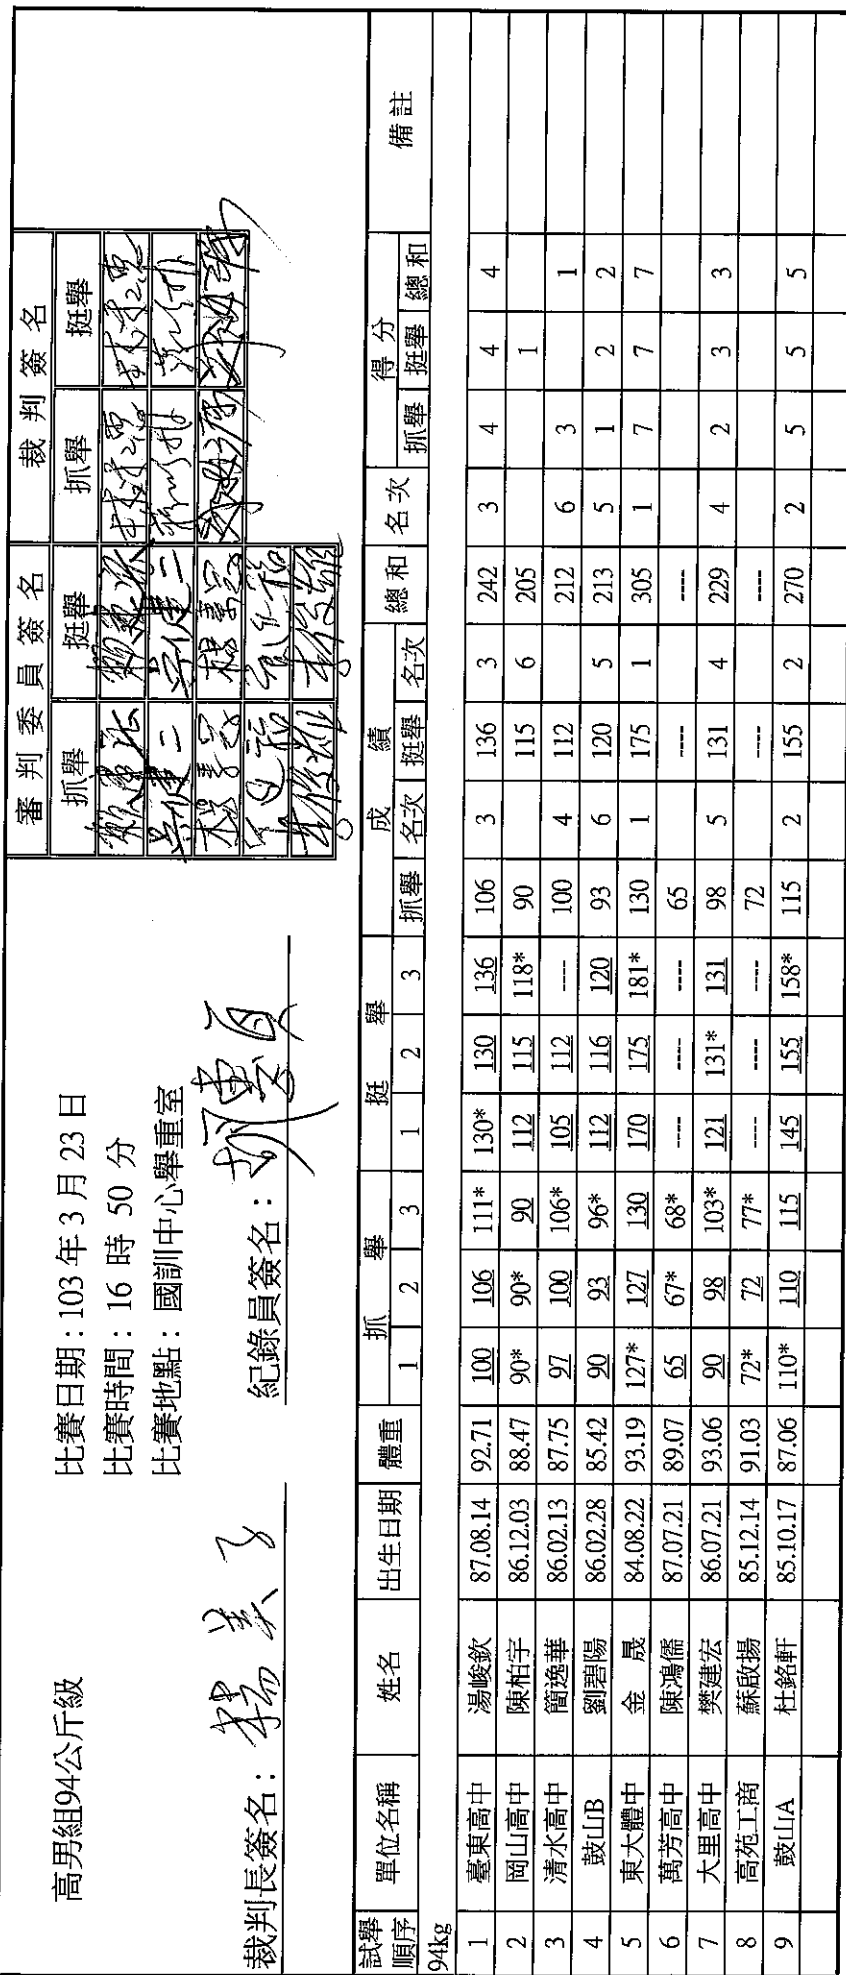 高男組94公斤級
比賽日期：103年3月23日
比賽時間：16 時 50 分
比賽地點：國訓中心舉重室
裁判長簽名：
紀錄員簽名：
審 判 委 員 簽 名 裁 判 簽 名
抓舉 挺舉 抓舉 挺舉
試舉順序 單位名稱 姓名 出生日期 體重 抓 舉 挺 舉 成 績 總和 名次 得 分 備註
1 2 3 1 2 3 抓舉 名次 挺舉 名次 抓舉 挺舉 總和
94kg
1 臺東高中 湯峻欽 87.08.14 92.71 100 106 111* 130* 130 136 106 3 136 3 242 3 4 4 4
2 岡山高中 陳柏宇 86.12.03 88.47 90* 90* 90 112 115 118* 90 115 6 205 1
3 清水高中 簡逸華 86.02.13 87.75 97 100 106* 105 112 ---- 100 4 112 212 6 3 1
4 鼓山B 劉碧陽 86.02.28 85.42 90 93 96* 112 116 120 93 6 120 5 213 5 1 2 2
5 東大體中 金 晟 84.08.22 93.19 127* 127 130 170 175 181* 130 1 175 1 305 1 7 7 7
6 萬芳高中 陳鴻儒 87.07.21 89.07 65 67* 68* ---- ---- ---- 65 ---- ----
7 大里高中 樊建宏 86.07.21 93.06 90 98 103* 121 131* 131 98 5 131 4 229 4 2 3 3
8 高苑工商 蘇啟揚 85.12.14 91.03 72* 72 77* ---- ---- ---- 72 ---- ----
9 鼓山A 杜銘軒 85.10.17 87.06 110* 110 115 145 155 158* 115 2 155 2 270 2 5 5 5